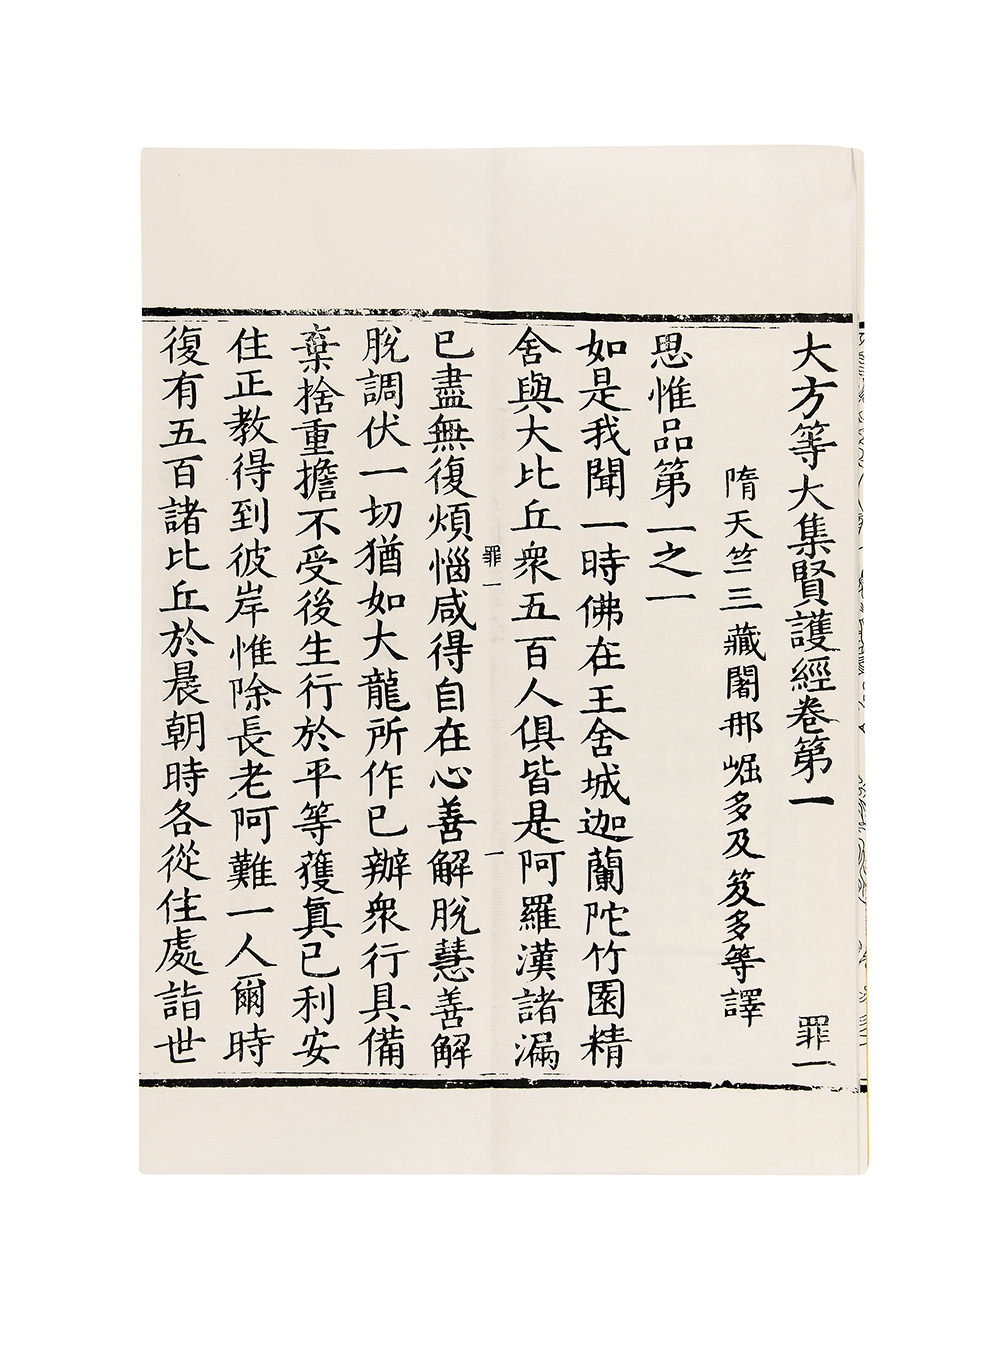 大方等大集賢護經卷第一　罪一
隋天竺三藏闍那崛多及笈多等譯
思惟品第一之一
如是我聞一時佛在王舍城迦蘭陀竹園精
舍與大比丘衆五百人俱皆是阿羅漢諸漏
罪一　一
已盡無復煩惱咸得自在心善解脫慧善解
脫調伏一切猶如大龍所作已辦衆行具備
棄捨重擔不受後生行於平等獲真已利安
住正教得到彼岸惟除長老阿難一人爾時
復有五百諸比丘於晨朝時各從住處詣世